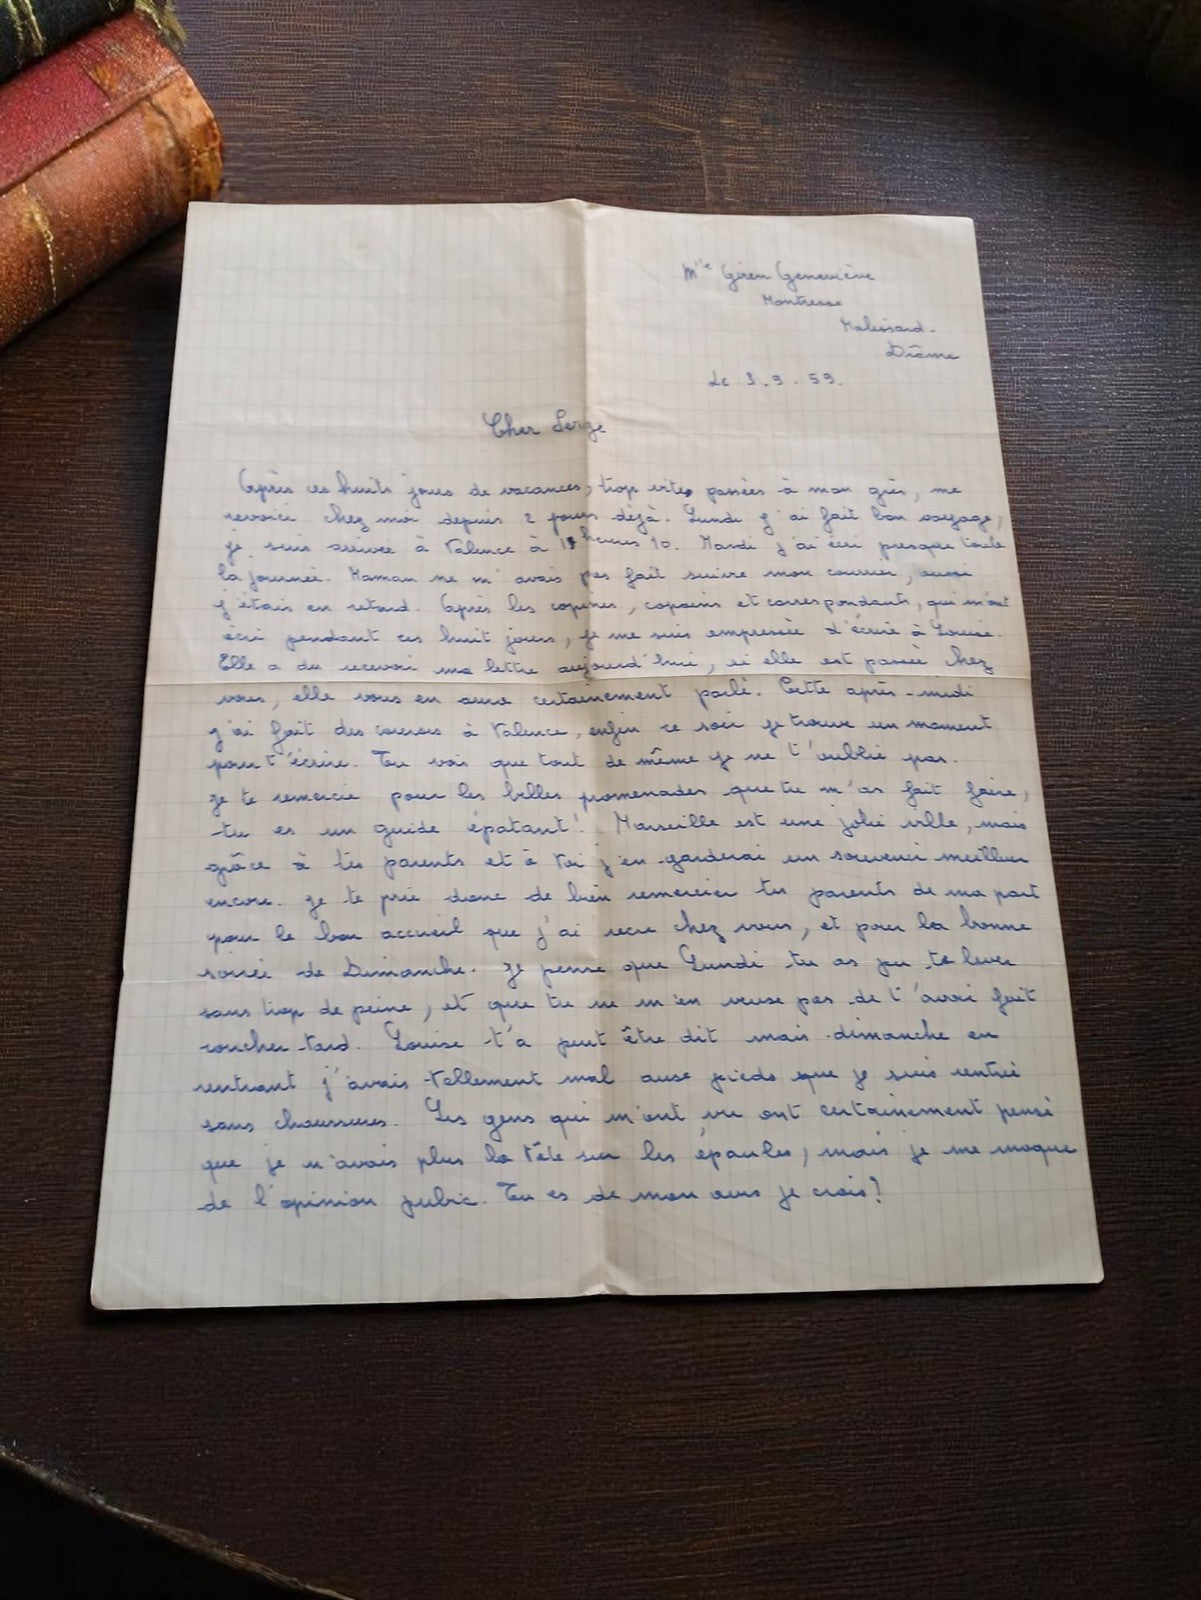 Mlle Giren Geneviève
Montresse
Malissard.
Drôme
Le 3.9.59.
Cher Serge
Après ces huits jours de vacances, trop vites passées à mon grès, me
revoici chez moi depuis 2 jours déjà. Lundi j'ai fait bon voyage,
je suis arrivée à Valence à heures 10. Mardi j'ai écri presque toute
la journée. Maman ne m'avais pas fait suivre mon courrier, aussi
j'étais en retard. Après les copines, copains et correspondants, qui m'ont
écri pendant ces huit jours, je me suis empressée d'écrire à Louise.
Elle a du recevoir ma lettre aujourd'hui, si elle est passée chez
vous, elle vous en aura certainement parlé. Cette après-midi
j'ai fait des courses à Valence, enfin ce soir je trouve un moment
pour t'écrire. Tu vois que tout de même je ne t'oublie pas.
Je te remercie pour les belles promenades que tu m'as fait faire,
tu es un guide épatant! Marseille est une jolie ville, mais
grâce à tes parents et à toi j'en garderai un souvenir meilleur
encore. Je te prie donc de bien remercier tes parents de ma part
pour le bon accueil que j'ai recu chez vous, et pour la bonne
soirée de Dimanche. Je pense que Lundi tu as pu te lever
sans trop de peine, et que tu ne m'en veuse pas de t'avoir fait
coucher tard. Louise t'a peut être dit mais dimanche en
rentrant j'avais tellement mal aux pieds que je suis rentré
sans chaussures. Les gens qui m'ont vu ont certainement pensé
que je n'avais plus la tête sur les épaules, mais je me moque
de l'opinion pubic. Tu es de mon avis je crois?